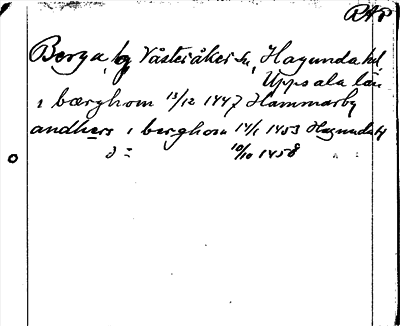 RAP
Berga, by Västeråker sn, Hagunda hd,
Uppsala län
i bærghom 13/12 1447 Hammarby
andhers i berghom 14/1 1453 Hagunda
d:o 10/10 1458